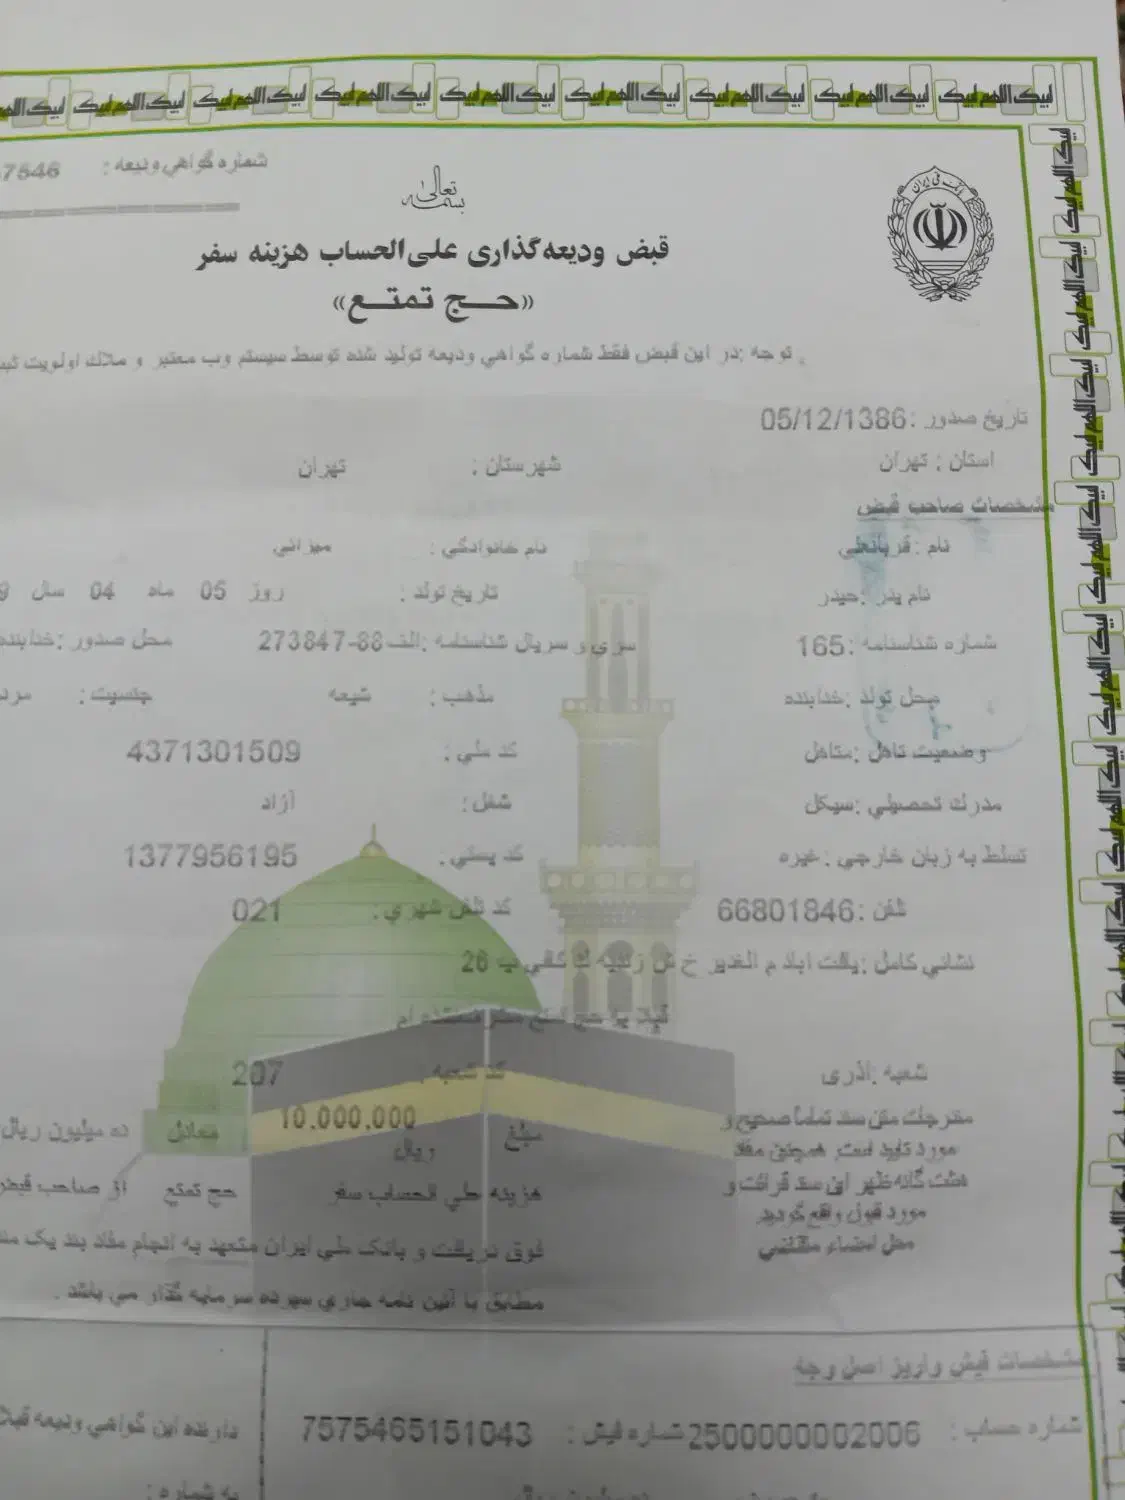 لبیک اللهم لبیک لبیک اللهم لبیک لبیک اللهم لبیک لبیک اللهم لبیک لبیک اللهم لبیک لبیک اللهم لبیک لبیک اللهم لبیک لبیک اللهم لبیک
شماره گواهي وديعه : 7546
بسمه تعالیٰ
قبض ودیعه‌گذاری علی‌الحساب هزینه سفر
«حج تمتع»
توجه :در اين قبض فقط شماره گواهي وديعه توليد شده توسط سيستم وب معتبر و ملاك اولويت
تاريخ صدور :05/12/1386
استان : تهران شهرستان : تهران
مشخصات صاحب قبض
نام :قربانعلي نام خانوادگي :
نام پدر :حيدر تاريخ تولد : روز 05 ماه 04 سال
شماره شناسنامه :165 سري و سريال شناسنامه :الف88-273847 محل صدور :خدابنده
محل تولد :خدابنده مذهب : شيعه جنسيت : مرد
وضعيت تاهل :متاهل كد ملي : 4371301509
مدرك تحصيلي :سيكل شغل : آزاد
تسلط به زبان خارجي :غيره كد پستي : 1377956195
تلفن :66801846 كد تلفن شهري : 021
نشاني كامل :يافت اباد م الغدير خ ش زنديه ك پ 26
شعبه :آذري كد شعبه : 207
مندرجات متن سند تماما صحيح و
مورد تاييد است. همچنين مفاد
هشت گانه ظهر اين سند قرائت و
مورد قبول واقع گرديد.
محل امضاء متقاضي
مبلغ 10.000.000 ريال معادل ده ميليون ريال
هزينه علي الحساب سفر حج تمتع از صاحب قبض
فوق دريافت و بانک ملي ايران متعهد به انجام مفاد بند يک
مطابق با آئين نامه جاري سپرده سرمايه گذار مي باشد .
مشخصات فيش واريز اصل وجه
شماره حساب : 2500000002006 شماره فيش : 7575465151043
دارنده اين گواهي وديعه قبلا
به شماره :